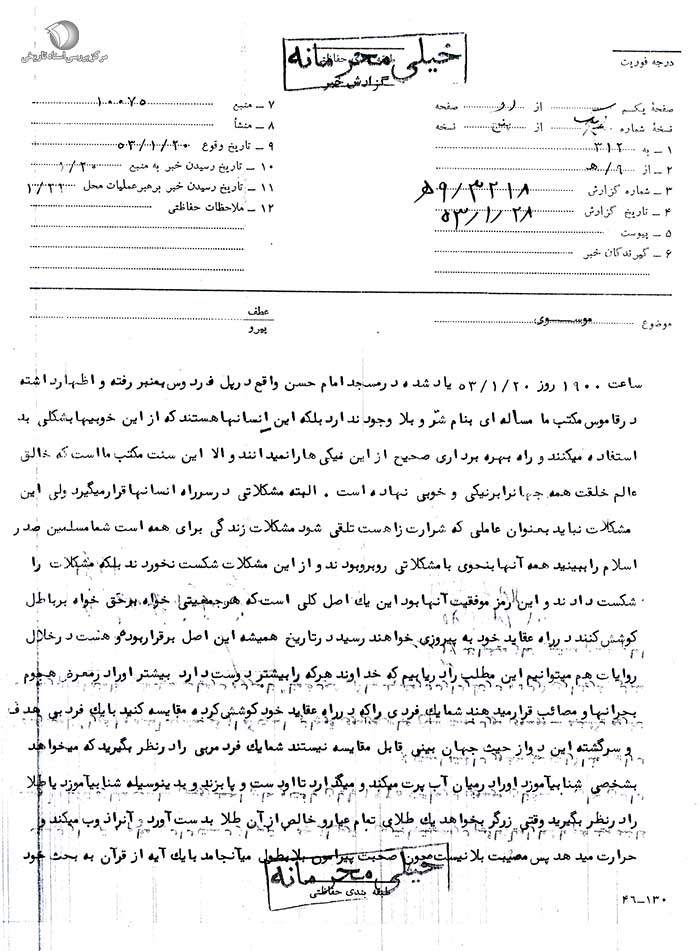 مرکز بررسی اسناد تاریخی
خیلی محرمانه
گزارش خبر
درجه فوریت
صفحهٔ یکم از دو صفحه
نسخهٔ شماره یک از پنج نسخه
۱ ـ به ۳۱۲
۲ ـ از ۹/ﻫ
۳ ـ شماره گزارش ۹/۳۲۱۸ﻫ
۴ ـ تاریخ گزارش ۵۳/۱/۲۸
۵ ـ پیوست
۶ ـ گیرندگان خبر
۷ ـ منبع ۱۰۰۷۵
۸ ـ منشأ
۹ ـ تاریخ وقوع ۵۳/۱/۲۰
۱۰ ـ تاریخ رسیدن خبر به منبع ۱/۲۰
۱۱ ـ تاریخ رسیدن خبر برهبرعملیات محل ۱/۲۲
۱۲ ـ ملاحظات حفاظتی
موضوع موسوی
عطف
پیرو
ساعت ۱۹۰۰ روز ۵۳/۱/۲۰ یاد شده درمسجد امام حسن واقع درپل فردوس بمنبر رفته و اظهارداشته
درقاموس مکتب ما مسأله ای بنام شرّ و بلا وجود ندارد بلکه این انسانها هستند که از این خوبیها بشکلی بد
استفاده میکنند و راه بهره برداری صحیح از این نیکی ها را نمیدانند و الا این سنت مکتب ما است که خالق
عالم خلقت همه جهانرا برنیکی و خوبی نهاده است . البته مشکلاتی درسرراه انسانها قرارمیگیرد ولی این
مشکلات نباید بعنوان عاملی که شرارت زا هست تلقی شود مشکلات زندگی برای همه است شما مسلمین صدر
اسلام را ببینید همه آنها بنحوی با مشکلاتی روبرو بودند و از این مشکلات شکست نخوردند بلکه مشکلات را
شکست دادند و این رمز موفقیت آنها بود این یك اصل کلی است که هرجمعیتی خواه برحق خواه برباطل
کوشش کنند در راه عقاید خود به پیروزی خواهند رسید درتاریخ همیشه این اصل برقرار بوده و هست درخلال
روایات هم میتوانیم این مطلب را دریابیم که خداوند هرکه را بیشتر دوست دارد بیشتر او را درمعرض هجوم
بحرانها و مصائب قرارمیدهند شما یك فردی را که در راه عقاید خود کوشش کرده مقایسه کنید با یك فرد بی هدف
و سرگشته این دو از حیث جهان بینی قابل مقایسه نیستند شما یك فرد مربی را درنظر بگیرید که میخواهد
بشخصی شنا بیآموزد او را درمیان آب پرت میکند و میگذارد تا او دست و پا بزند و بدینوسیله شنا بیآموزد یا طلا
را درنظر بگیرید وقتی زرگر بخواهد یك طلای تمام عیار و خالص از آن طلا بدست آورد و آنرا ذوب میکند و
حرارت میدهد پس مصیبت بلا نیست چون صحبت پیرامون بلا بطول میآنجامد با یك آیه از قرآن به بحث خود
خیلی محرمانه
طبقه بندی حفاظتی
۴۶-۱۳۰